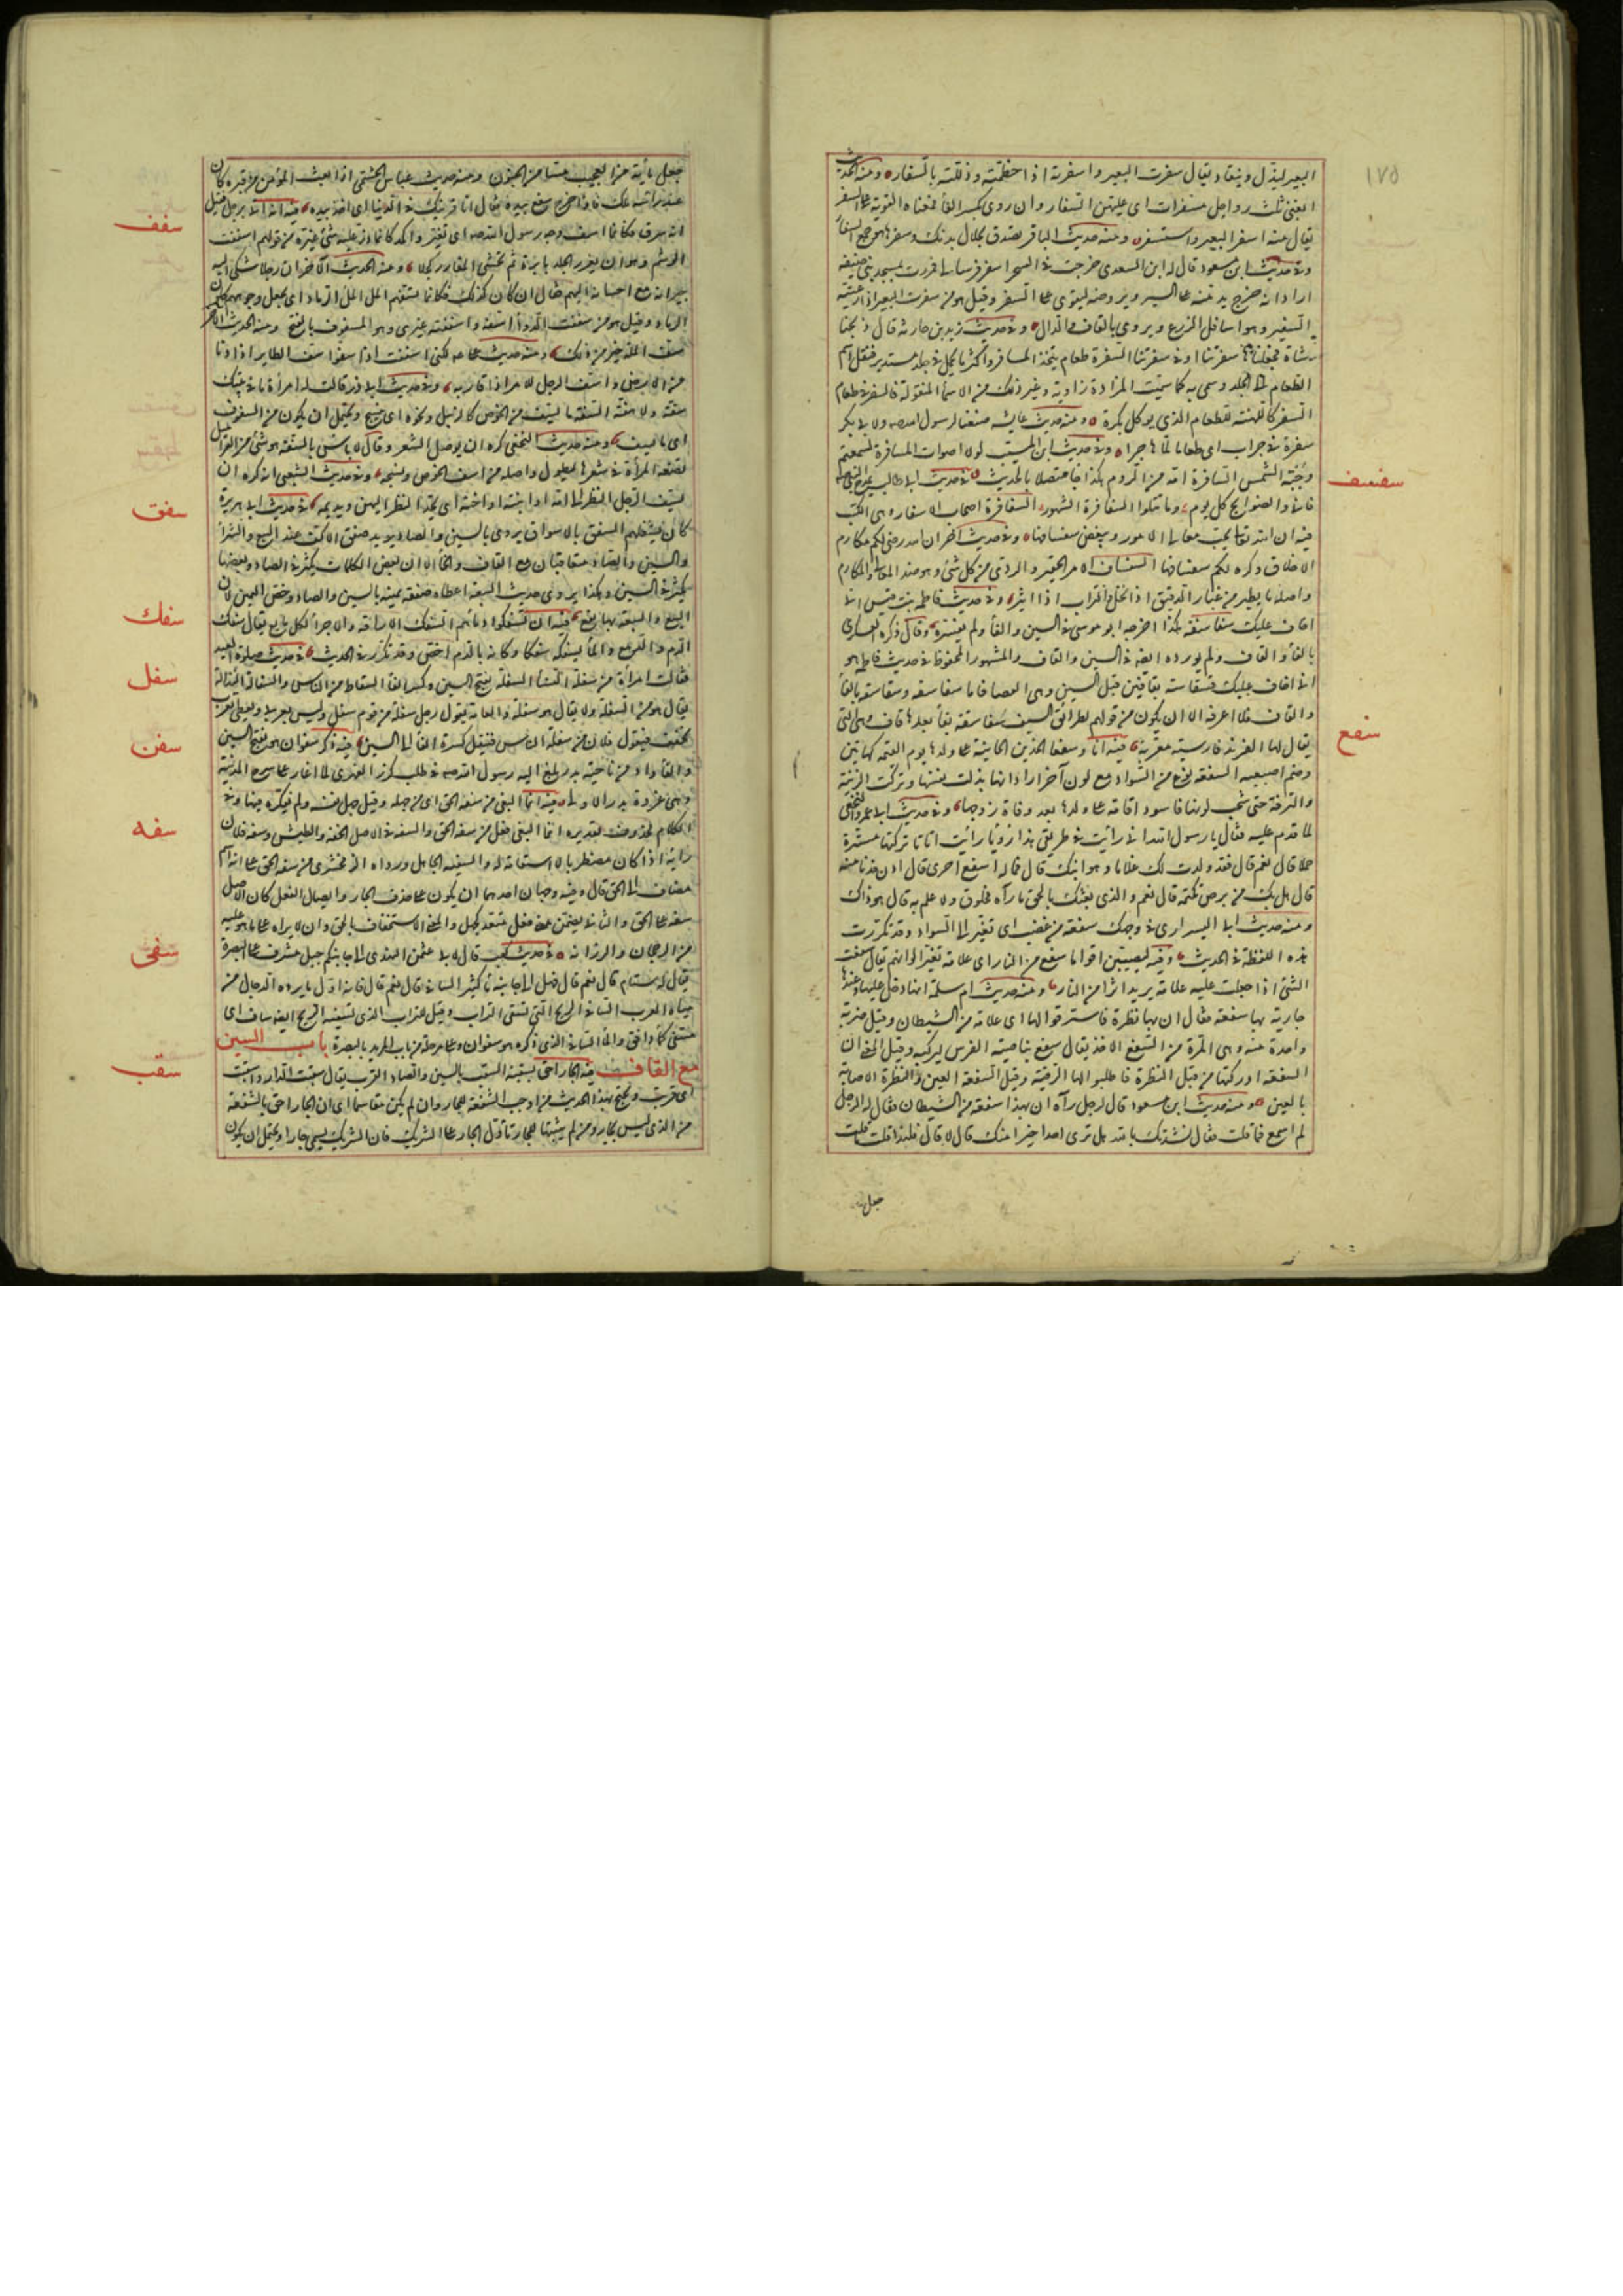 ١٧٥
البعير ليذل وينقاد يقال سفرت البعير واسفرته اذا خطمته وذللته بالسفار ومنه الحديث
ابغني ثلث رواحل مسفرات اى عليهن السفار وان روى بكسر الفا فمعناه القوية على السفر
يقال منه اسفر البعير واستسفر ومنه حديث الباقر تصدق بجلال بدنك وسفرها هو جمع السفار
وفى حديث ابن مسعود قال له ابن السعدى خرجت فى السحر اسفر فرسا لى فمررت بمسجد بنى حنيفة
اراد انه خرج يدمنه على السير ويروضه ليقوى على السفر وقيل هو من سفرت البعير اذا رعيته
السفير وهو اسافل الزرع ويروى بالقاف والدال وفى حديث زيد بن حارثة قال ذبحنا
شاة فجعلناها سفرتنا او فى سفرتنا السفرة طعام يتخذه المسافر واكثر ما يحمل فى جلد مستدير فنقل اسم
الطعام الى الجلد وسمى به كما سميت المزادة راوية وغير ذلك من الاسماء المنقولة فالسفرة فى طعام
السفر كاللهنة للطعام الذى يوكل بكرة ومنه حديث عايشه صنعنا لرسول الله صه ولابى بكر
سفرة فى جراب اى طعاما لما هاجرا وفى حديث ابن المسيب لولا اصوات السافرة لسمعتم
وجبة الشمس السافرة امة من الروم هكذا جا متصلا بالحديث فى حديث ابى طالب يمدح النبى صلعم
فانى والضوابح كل يوم وما تتلوا السفاسرة الشهور السفاسرة اصحاب الاسفار وهى الكتب
سفسف
فيه ان الله تعالى يحب معالى الامور ويبغض سفسافها وفى حديث آخر ان الله رضى لكم مكارم
الاخلاق وكره لكم سفسافها السفساف الامر الحقير والردى من كل شئ وهو ضد المعالى والمكارم
واصله ما يطير من غبار الدقيق اذا نخل والتراب اذا اثير وفى حديث فاطمه بنت قيس انى
اخاف عليك سفاسفه هكذا اخرجه ابو موسى فى السين والفا ولم يفسره وقال ذكره العسكرى
بالفا والقاف ولم يورده ايضه فى السين والقاف والمشهور المحفوظ فى حديث فاطمه انما هو
انى اخاف عليك قسقاسته بقافين قبل السينين وهى العصا فاما سفاسفه وسقاسقه بالفا
والقاف فلا اعرفه الا ان يكون من قولهم لطرائق السيف سفاسقه بفا بعدها قاف وهى التى
سفع
يقال لها الفرند فارسية معربة فيه انا وسفعا الخدين الحانية على ولدها يوم القيمة كهاتين
وضم اصبعيه السفعه نوع من السواد مع لون آخر اراد انها بذلت نفسها وتركت الزينة
والترفة حتى شحب لونها فاسود اقامة على ولدها بعد وفاة زوجها وفى حديث ابى عمرو النخعى
لما قدم عليه فقال يا رسول الله انى رايت فى طريقى هذا رؤيا رايت اتانا تركتها مسرة
حملا قال نعم قال فقد ولدت لك غلاما وهو ابنك قال فما له اسفع احوى قال ادن فدنا منه
قال هل بك من برص تكتمه قال نعم والذى بعثك بالحق ما رآه مخلوق ولا علم به قال هو ذاك
ومنه حديث ابى اليسر ارى فى وجهك سفعة من غضب اى تغيرا الى السواد وقد تكررت
هذه اللفظة فى الحديث وفيه ليصيبن اقواما سفع من النار اى علامة تغير الوانهم يقال سفعت
الشئ اذا جعلت عليه علامة يريد اثرا من النار ومنه حديث ام سلمة انه دخل عليها وعندها
جارية بها سفعة فقال ان بها نظرة فاسترقوا لها اى علامة من الشيطان وقيل ضربة
واحدة منه وهى المرة من السفع الاخذ يقال سفع بناصية الفرس ليركبه وقيل المعنى ان
السفعه ادركتها من قبل النظرة فاطلبوا لها الرقية وقيل السفعة العين والنظرة الاصابة
بالعين ومنه حديث ابن مسعود قال لرجل رآه ان بهذا سفعة من الشيطان فقال له الرجل
لم اسمع ما قلت فقال نشدتك بالله هل ترى احدا خيرا منك قال لا قال فلهذا قلت ما قلت
جعل
جعل ما به من العجب مسا من الجنون ومنه حديث عباس الجشمى اذا بعث المؤمن من قبره كان
عند راسه ملك فاذا خرج سفع بيده فقال انا قرينك فى الدنيا اى اخذ بيده فيه انه اتى برجل فقيل
سفف
انه سرق فكانما اسف وجه رسول الله صه اى تغير واكمد كانما ذر عليه شئ غيره من قولهم اسففت
الوشم وهو ان يغرز الجلد بابرة ثم تحشى المغارز كحلا ومنه الحديث الآخر ان رجلا شكى اليه
جيرانه مع احسانه اليهم فقال ان كان كذلك فكانما تسفهم المل المل الرماد اى تجعل وجوههم كلون
الرماد وقيل هو من سففت الدواء اسفه واسففته غيرى وهو السفوف بالفتح ومنه الحديث الآخر
سف الملة خير من ذلك ومنه حديث على عم لكنى اسففت اذ اسفوا اسف الطاير اذا دنا
من الارض واسف الرجل للامر اذا قاربه وفى حديث ابى ذر قالت له امراة ما فى بيتك
سفة ولا هفة السفة ما يسف من الخوص كالزبيل ونحوه اى ينسج ويحتمل ان يكون من السفوف
اى ما يسف ومنه حديث النخعى كره ان يوصل الشعر وقال لا باس بالسفة هو شئ من القرامل
تضعه المرأة فى شعرها ليطول واصله من اسف الخوص ونسجه وفى حديث الشعبى انه كره ان
سفق
يسف الرجل النظر الى امه او ابنته او اخته اى يحد النظر اليهن ويديمه فى حديث ابى هريرة
كان يشغلهم السفق بالاسواق يروى بالسين والصاد يريد صفق الاكف عند البيع والشرا
والسين والصاد متعاقبان مع القاف والخا الا ان بعض الكلمات يكثر فى الصاد وبعضها
يكثر فى السين وهكذا يروى حديث البيعة اعطاه صفقة يمينه بالسين والصاد وخص اليمين لان
سفك
البيع والبيعة بها يقع فيه ان تسفكوا دماءهم السفك الاراقة والاجراء لكل مايع يقال سفك
الدم والدمع والماء يسفكه سفكا وكانه بالدم اخص وقد تكرر فى الحديث فى حديث صلوة العيد
سفل
فقالت امراة من سفلة النسا السفلة بفتح السين وكسر الفا السقاط من الناس والسفالة النذالة
يقال هو من السفلة ولا يقال هو سفلة والعامة يقول رجل سفلة من قوم سفل وليس بعربى وبعض العرب
سفن
يخفف فيقول فلان من سفلة الناس فينقل كسرة الفا الى السين فيه ذكر سفوان هو بفتح السين
والفا واد من ناحية بدر بلغ اليه رسول الله صه فى طلب كرز الفهرى لما اغار على سرح المدينة
وهى غزوة بدر الاولى فيه انما البغى من سفه الحق اى من جهله وقيل جهل نفسه ولم يفكر فيها وفى
سفه
الكلام محذوف تقديره انما البغى فعل من سفه الحق والسفه فى الاصل الخفة والطيش وسفه فلان
رأيه اذا كان مضطربا لا استقامة له والسفيه الجاهل ورواه الزمخشرى من سفه الحق على انه اسم
مضاف الى الحق قال وفيه وجهان احدهما ان يكون على حذف الجار وايصال الفعل كان الاصل
سفه على الحق والثانى ان يضمن معنى فعل متعد كجهل والمعنى الاستخفاف بالحق وان لا يراه على ما هو عليه
سفى
من الرجحان والرزانة فى حديث كعب قال لابى عثمن النهدى الى جانبكم جبل مشرف على البصرة
يقال له سنام قال نعم قال فهل الى جانبه ماء كثير السافى قال نعم قال فانه اول ما يرده الدجال من
مياه العرب السافى الريح التى تسفى التراب وقيل للتراب الذى تسفيه الريح ايضه ساف اى
مسفى كماء دافق والماء السافى الذى ذكره هو سفوان وهى على مرحلة من باب المربد بالبصرة باب السين
سقب
مع القاف فيه الجار احق بسقبه السقب بالسين والصاد القرب يقال سقبت الدار واسقبت
اى قربت ويحتج بهذا الحديث من اوجب الشفعة للجار وان لم يكن مقاسما اى ان الجار احق بالشفعة
من الذى ليس بجار ومن لم يثبتها للجار تأول الجار على الشريك فان الشريك يسمى جارا ويحتمل ان يكون